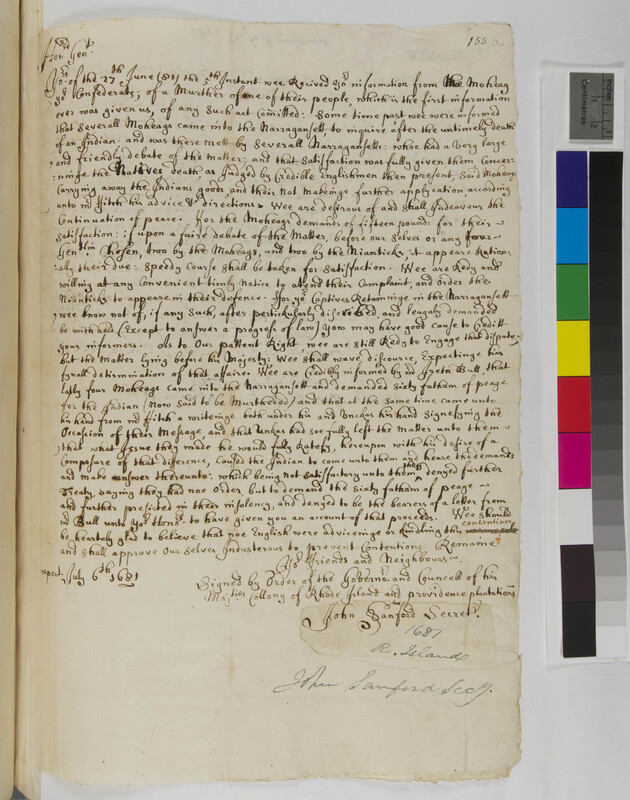 155
Hon.rd Gent
Yors of the 27th June (81) the 5th Instant wee Recived Yor information from the Moheag
Yor Confederats; of a Murther of one of their people, which is the first information
ever was given us, of any such act Comitted: Some time past wee were informed
that Severall Moheags came into the Narragansett to inquire after the untimely death
of an Indian: and was there mett by Severall Narragansetts: whoe had a very large
and friendly debate of the matter; and that Satisfaction was fully given them Concer-
:ninge the Natives death, as Judged by Credible Englishmen then present, Said Moheags
Carrying away the Indians goods, and their not makeinge further application according
unto mr Fitch his advice & directions. Wee are desirous of and shall Endeavour the
Continuation of peace. For the Moheags demands of fifteen pounds for their
Satisfaction: if upon a faire debate of the Matter, before our Selves or any
Gentlm Chosen, two by the Moheags, and two by the Nianticks it appeare Ration-
:ally their due: Speedy Course shall be taken for Satisfaction. Wee are Redy and
willing at any Convenient timly Notice to attend their Complaint, and order the
Nianticks to appeare in their defence. For yor Captives Retaininge in the Narragansett
wee know not of, if any Such, after perticularly discribed, and Leagaly demanded
be withheld (Except to answer a progress of law) You may have good cause to Creditt
your informers. As to Our pattent Right wee are still Redy to Engage that dispute,
but the Matter lying before his Majesty: Wee shall wave discourse, Expectinge his
fynall determination of that affaire. Wee are Credibly informed by mr Jireth Bull that
latly four Moheags came into the Narragansett and demanded Sixty fathom of peage
for the Indian (Now Said to be Murthered) and that at the same time came unto
his hand from mr Fitch a writeinge both under his and Unckas his hand Signefying the
Occasion of their Message and that Unkas had see fully left the Matter unto them
that what issue they made he would fully Ratefy, hereupon with his desire of a
Composure of that difference, Caused the Indian to come unto them and heare the demands
and make answer thereunto: which being not Satisfactory unto them they denyed further
Treaty, saying they had noe order but to demand the Sixty fathom of peage
and further presisted in their insolency, and denyed to be the bearers of a letter from
mr Bull unto Yor Honrs to have given you an account of that proceeder. Wee should
be heartyly glad to believe that noe English were advicinge or kindling this contention
and shall approve Our Selves Industerous to prevent Contention, Remaine
Yor Friends and Neighbours
port July 6th 1681
Signed by Order of the Governor and Councell of his
Majties Collony of Rhode Island and providence plantations
John Sanford Secretr.
1681
R. Island
John Sanford Secy.